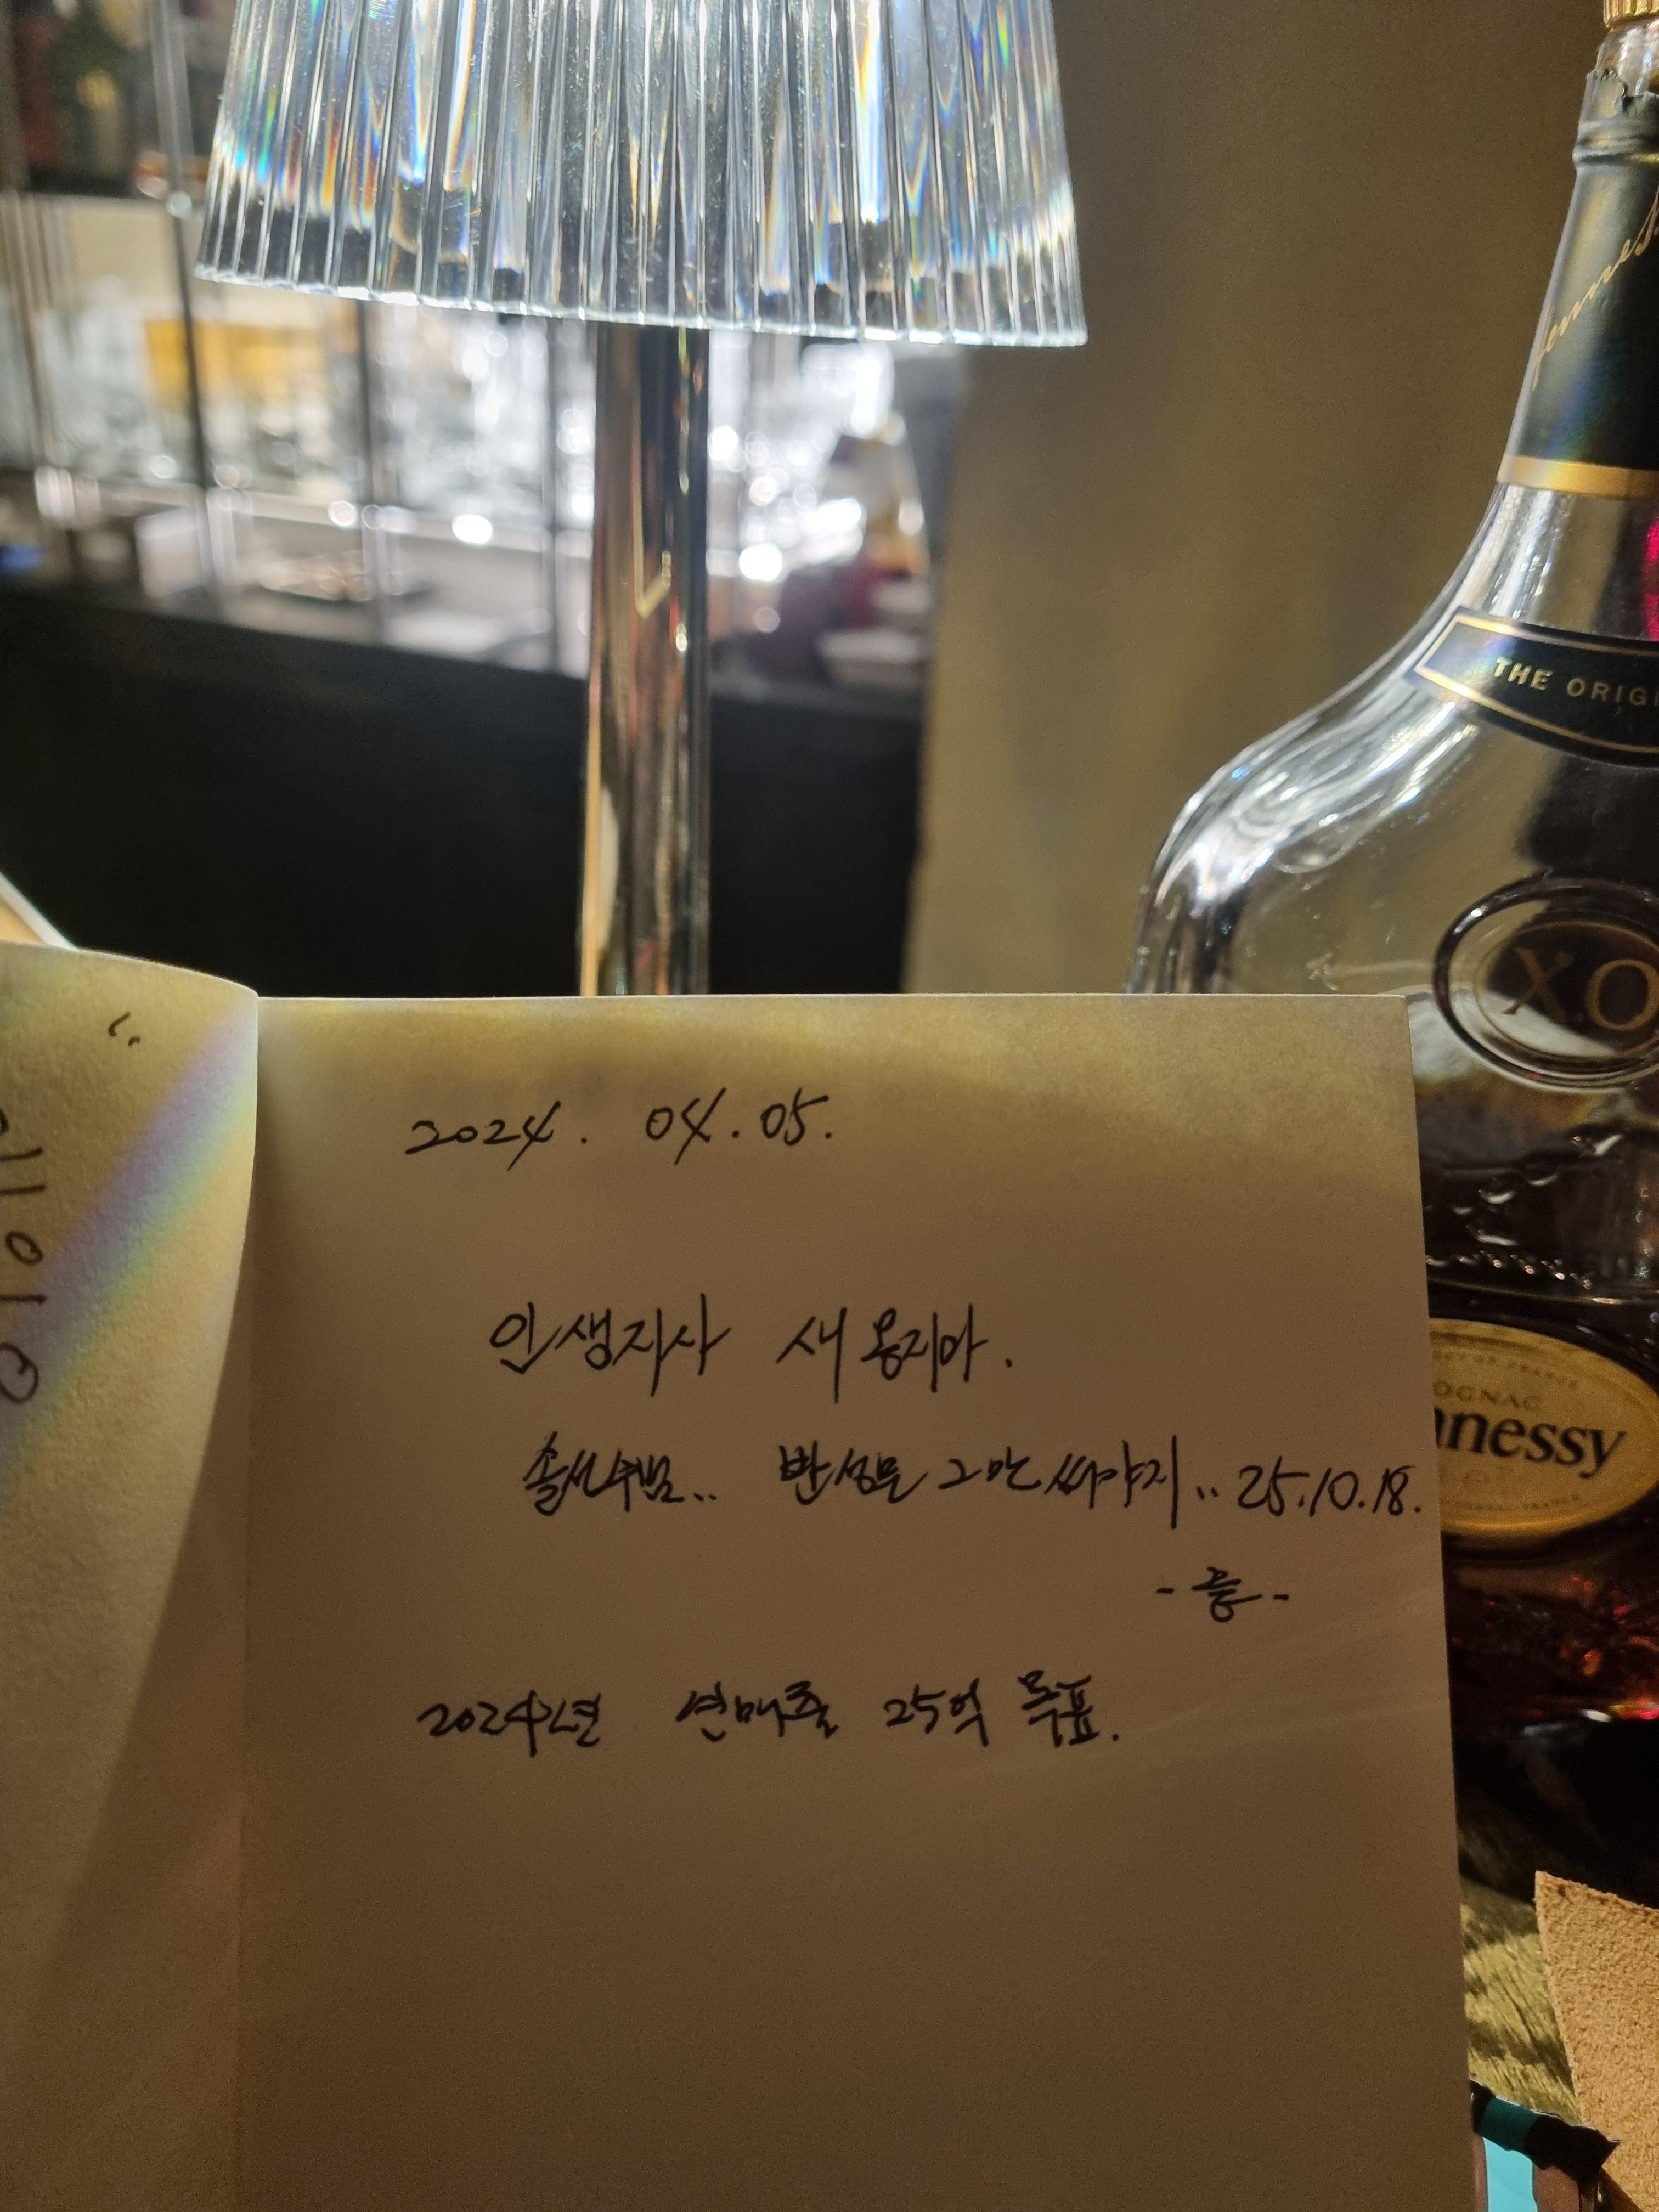 THE ORIGI
X.O
COGNAC
nnessy
2024. 04.05.
인생지사 새옹지마.
반성문 그만 써야지.. 25.10.18.
2024년 연매출 25억 목표.